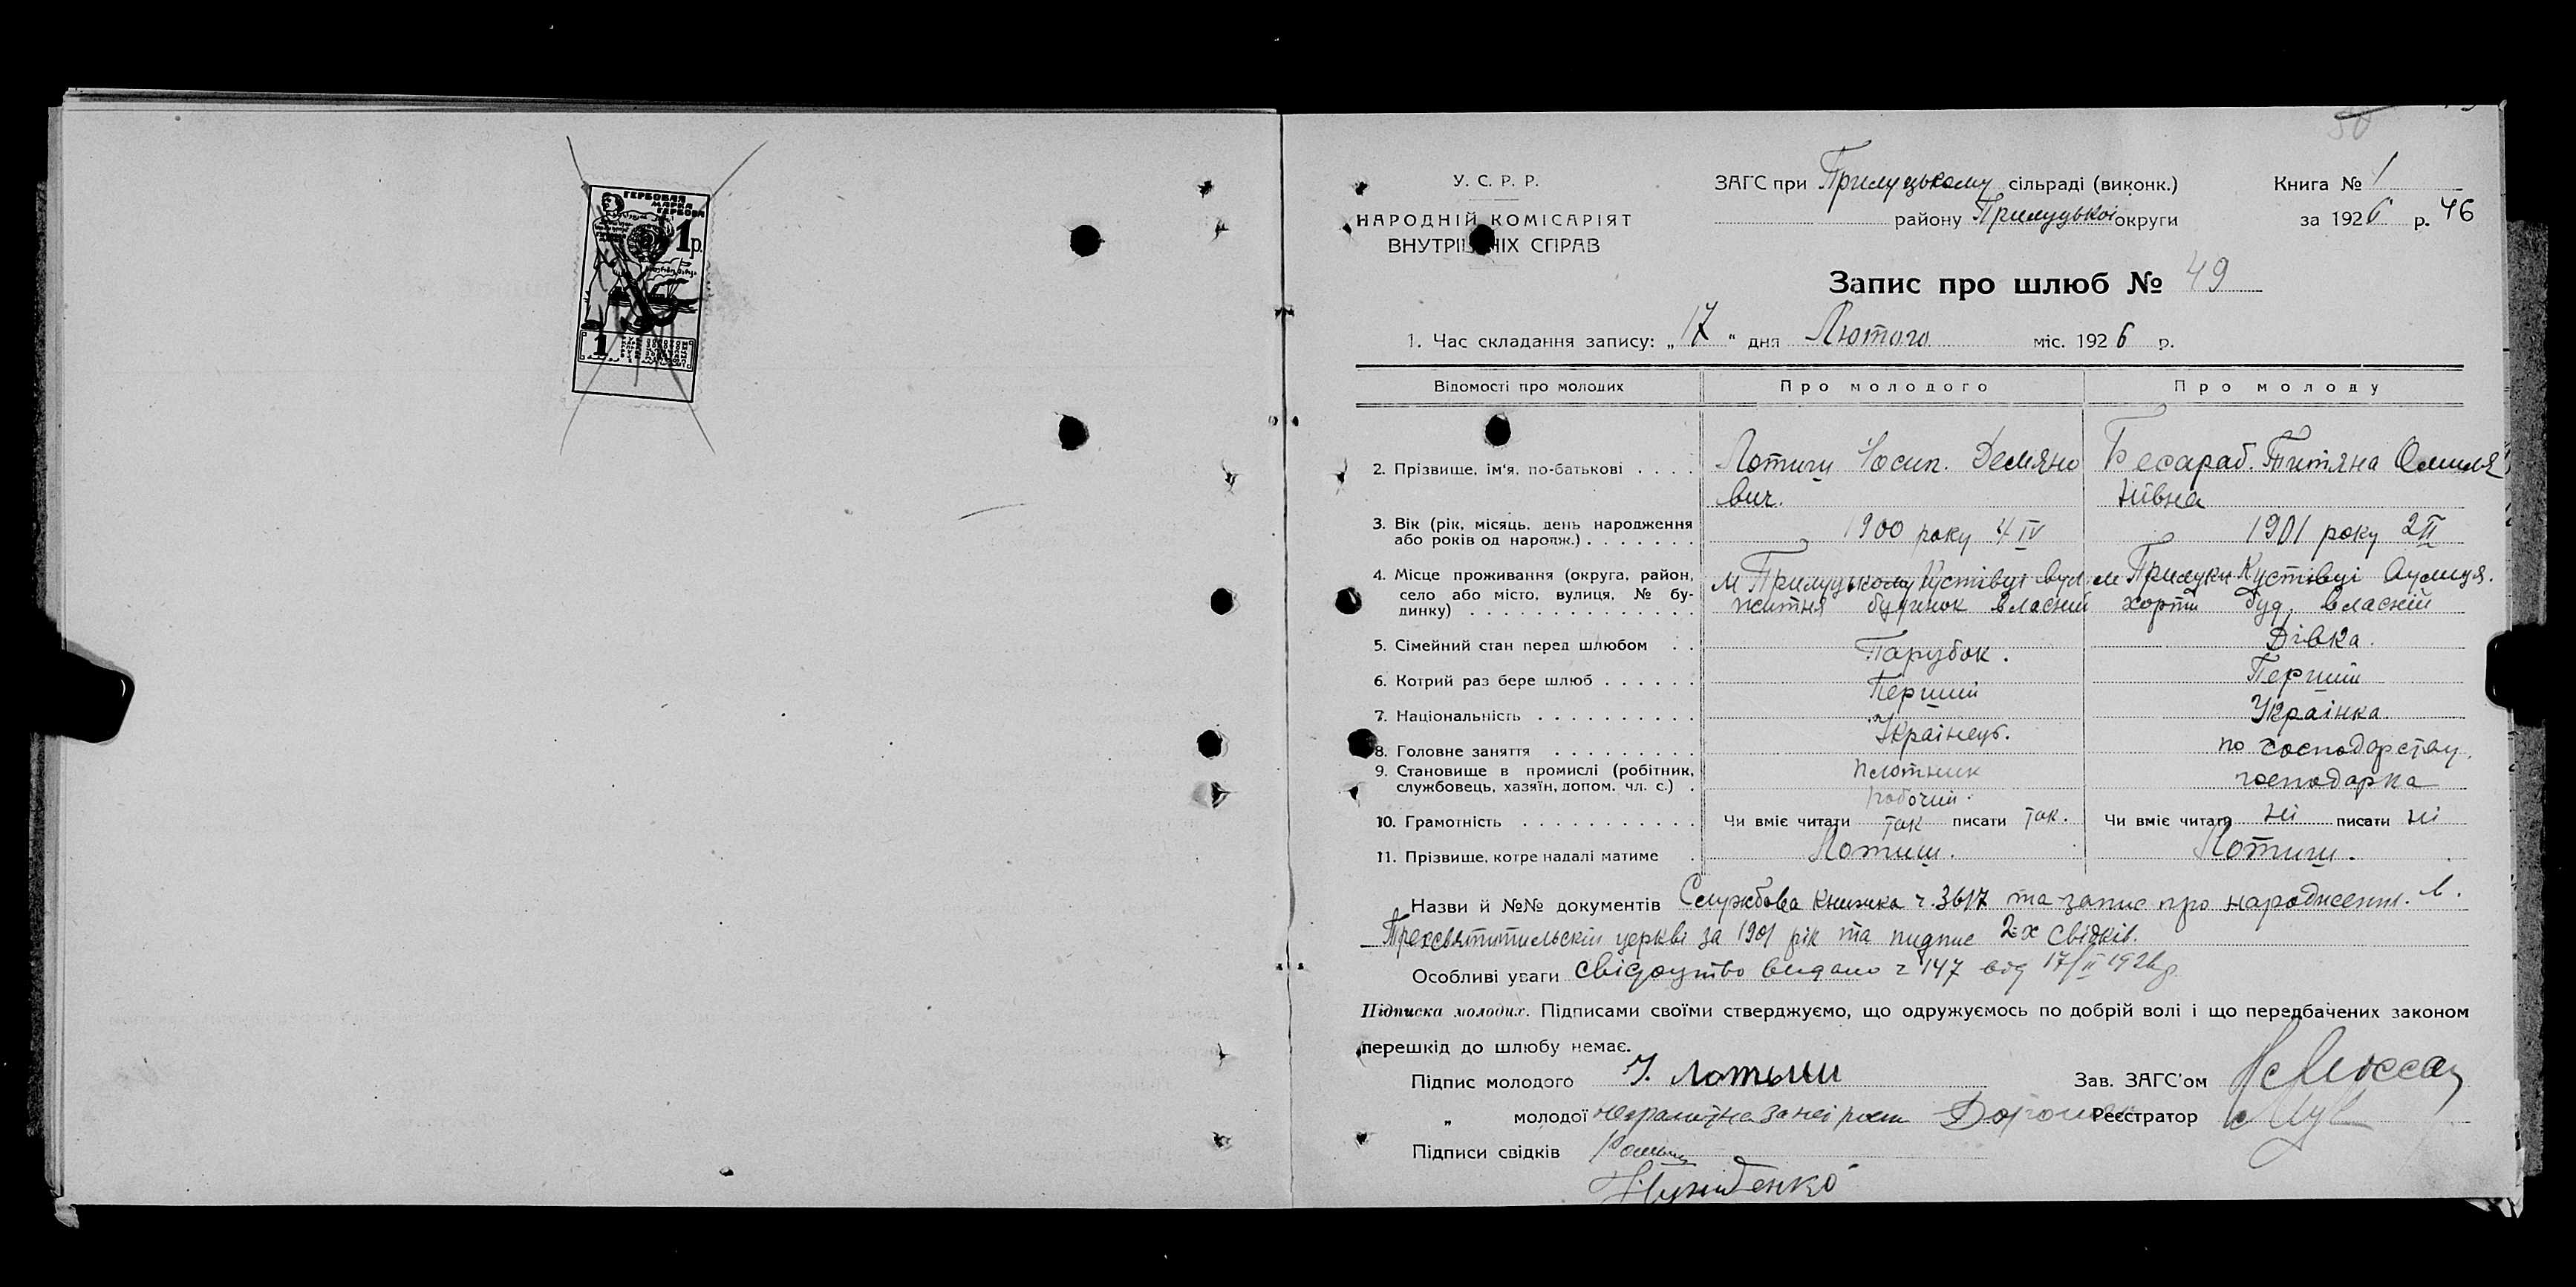 ГЕРБОВАЯ
МАРКА
ГЕРБОВА
1р.
1
50
У. С. Р. Р.
НАРОДНІЙ КОМІСАРІЯТ
ВНУТРІШНІХ СПРАВ
ЗАГС при Прилуцькому сільраді (виконк.)
району Прилуцької округи
Книга № 1
за 1926 р. 46
Запис про шлюб № 49
1. Час складання запису: „17" дня Лютого міс. 1926 р.
Відомості про молодих Про молодого Про молоду
2. Прізвище, ім'я, по-батькові . . . . Лотиш Йосип. Демяно Бесараб. Титяна Омиля
вич. нівна
3. Вік (рік, місяць, день народження
або років од народж.) . . . . . . . 1900 року 4 IV 1901 року 2 II
4. Місце проживання (округа, район, м Прилуцькому Кустівці вул. м Прилуки Кустівці вулиця.
село або місто, вулиця, № бу-
динку) . . . . . . . . . . . . . . житня будинок власний буд. власній
5. Сімейний стан перед шлюбом . . Парубок. Дівка.
6. Котрий раз бере шлюб . . . . . . Перший Перший
7. Національність . . . . . . . . . . Українець. Українка.
8. Головне заняття . . . . . . . . . Плотник по господарству.
9. Становище в промислі (робітник,
службовець, хазяїн, допом. чл. с.) . Робочий. господарка
10. Грамотність . . . . . . . . . . . Чи вміє читати так писати так. Чи вміє читати ні писати ні
11. Прізвище, котре надалі матиме . Лотиш. Лотиш.
Назви й №№ документів Службова книжка ч. 3617 та запис про народження. в.
Трехсвятительскій церкві за 1901 рік та пидпис 2-х свідків.
Особливі уваги свідоцтво видано ч 147 від 17/II 1926р
Підписка молодих. Підписами своїми стверджуємо, що одружуємось по добрій волі і що передбачених законом
перешкід до шлюбу немає.
Підпис молодого И. Лотыш Зав. ЗАГС'ом
„ молодої неграмотна за неї Реєстратор
Підписи свідків